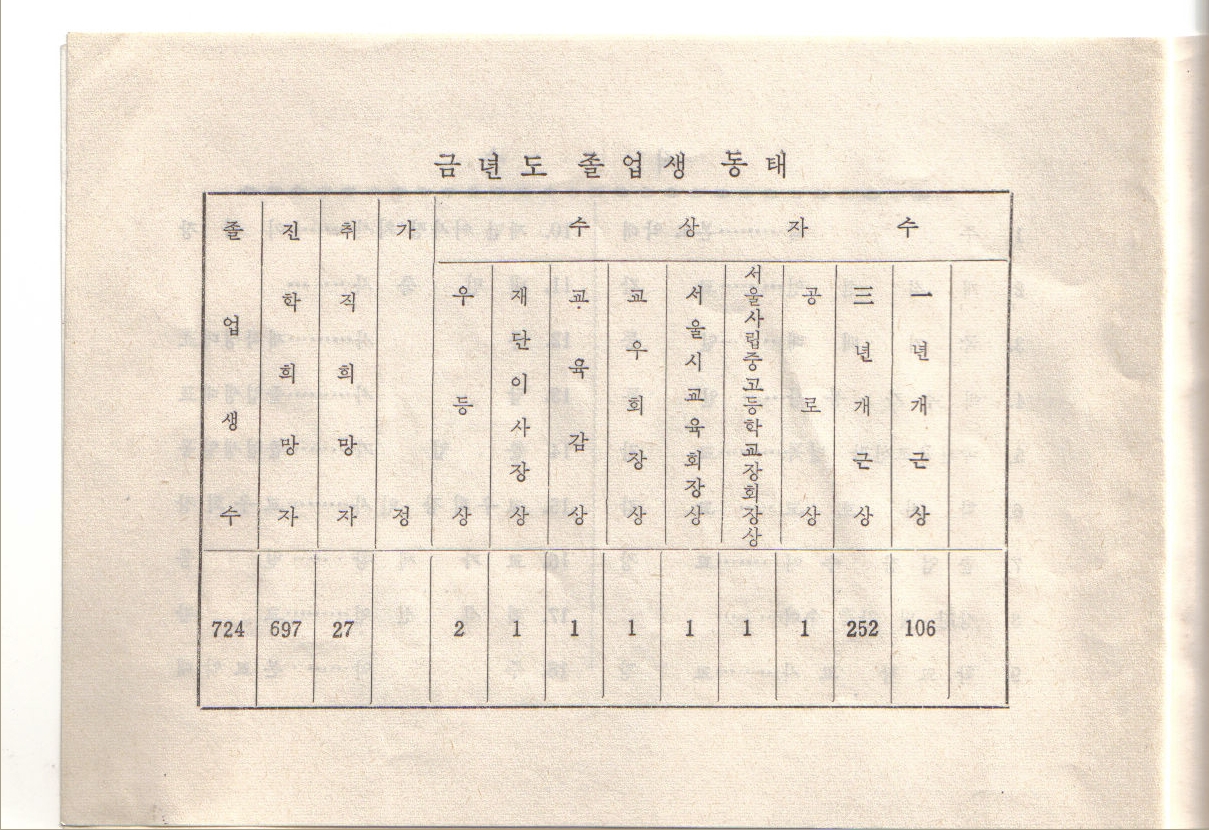 금년도 졸업생 동태
졸업생수
진학희망자
취직희망자
가정
수상자수
우등상
재단이사장상
교육감상
교우회장상
서울시교육회장상
서울사립중고등학교장회장상
공로상
三년개근상
一년개근상
724 697 27 2 1 1 1 1 1 1 252 106